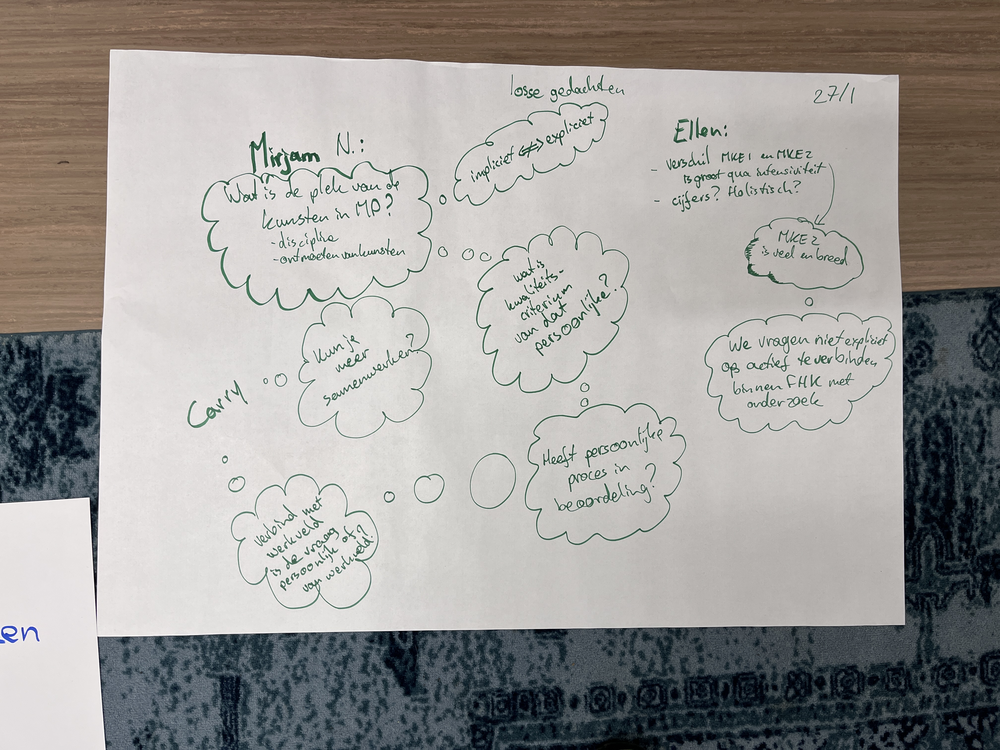 losse gedachten
27/1
Mirjam N.:
Wat is de plek van de
kunsten in MP?
- discipline
- ontmoeten van kunsten
impliciet <≠> expliciet
Ellen:
- verschil MKE1 en MKE2
is groot qua intensiviteit
- cijfers? Holistisch?
MKE2
is veel en breed
We vragen niet expliciet
op actief te verbinden
binnen FHK met
onderzoek
wat is
kwaliteits-
criterium
van dat
persoonlijke?
Kun je
meer
samenwerken?
Carry
Heeft persoonlijke
proces in
beoordeling?
verbind met
werkveld
is de vraag
persoonlijk of
van werkveld?
en